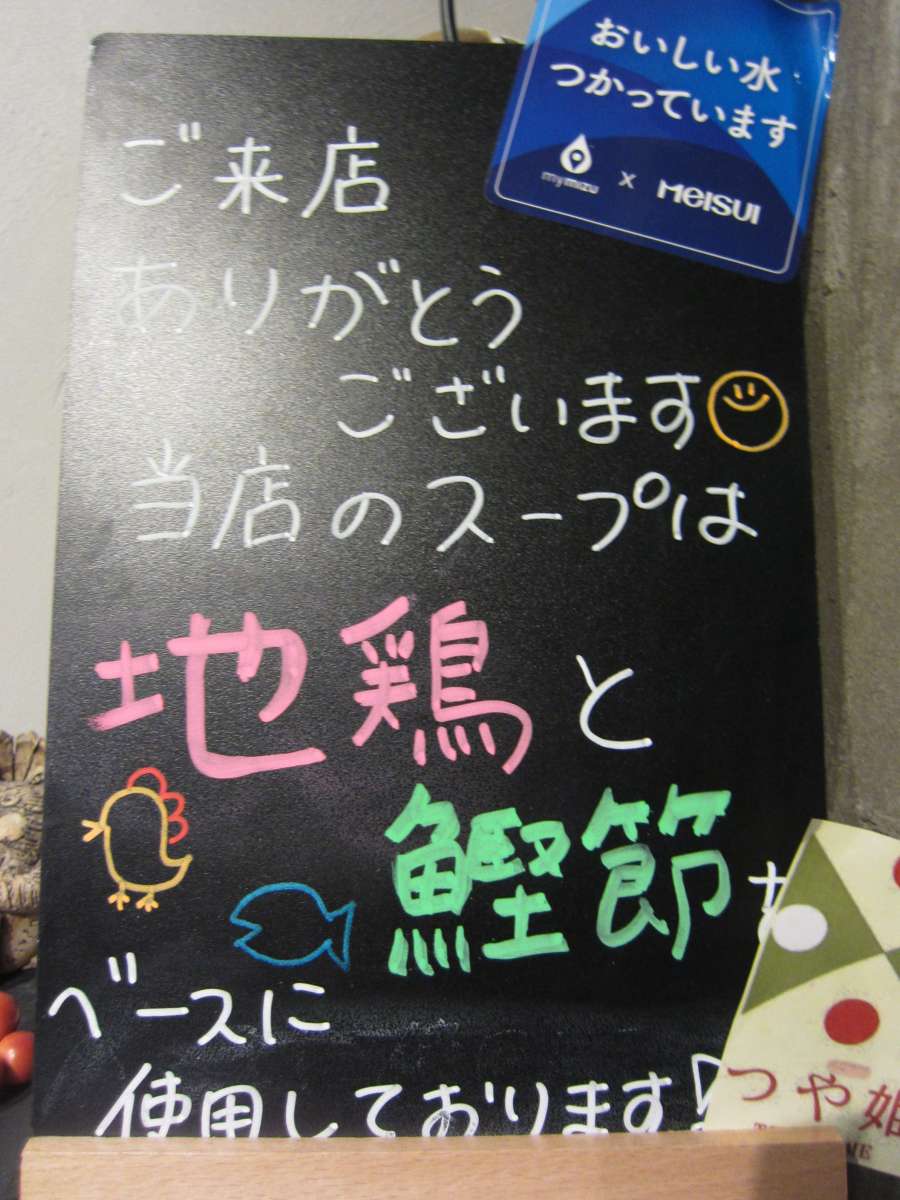 おいしい水
つかっています
mymizu x MEISUI
ご来店
ありがとう
ございます
当店のスープは
地鶏と
鰹節
ベースに
使用しております!
つや姫